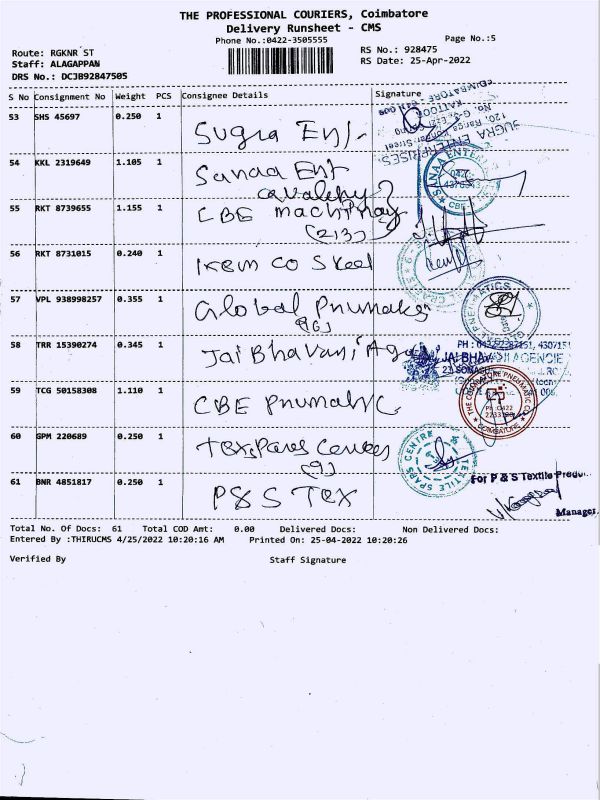 THE PROFESSIONAL COURIERS, Coimbatore
Delivery Runsheet - CMS
Phone No.:0422-3505555
Page No.:5
Route: RGKNR ST
RS No.: 928475
Staff: ALAGAPPAN
RS Date: 25-Apr-2022
DRS No.: DCJB92847505
S No Consignment No Weight PCS Consignee Details Signature
53 SHS 45697 0.250 1 Sugra Ent.
SUGRA ENTERPRISES
54 KKL 2319649 1.105 1 Sanaa Ent
SANAA ENTER
CBE
55 RKT 8739655 1.155 1 CBE machinay
(213)
56 RKT 8731015 0.240 1 Kem co Steel
57 VPL 938998257 0.355 1 Global Pnumaks
(16)
58 TRR 15390274 0.345 1 Jai Bhavani Age
PH : 0422-2237151, 430715
JAI BHAVANI AGENCIE
59 TCG 50158308 1.110 1 CBE Pnumatic
THE COIMBATORE PNEUMATIC CO
Ph : 0422
COIMBATORE
60 GPM 220689 0.250 1 Tex Spares Centres
(9)
TEXTILE SPARS CENTRE
61 BNR 4851817 0.250 1 P&S Tex
For P & S Textile Produ..
Manager.
Total No. Of Docs: 61 Total COD Amt: 0.00 Delivered Docs: Non Delivered Docs:
Entered By :THIRUCMS 4/25/2022 10:20:16 AM Printed On: 25-04-2022 10:20:26
Verified By Staff Signature